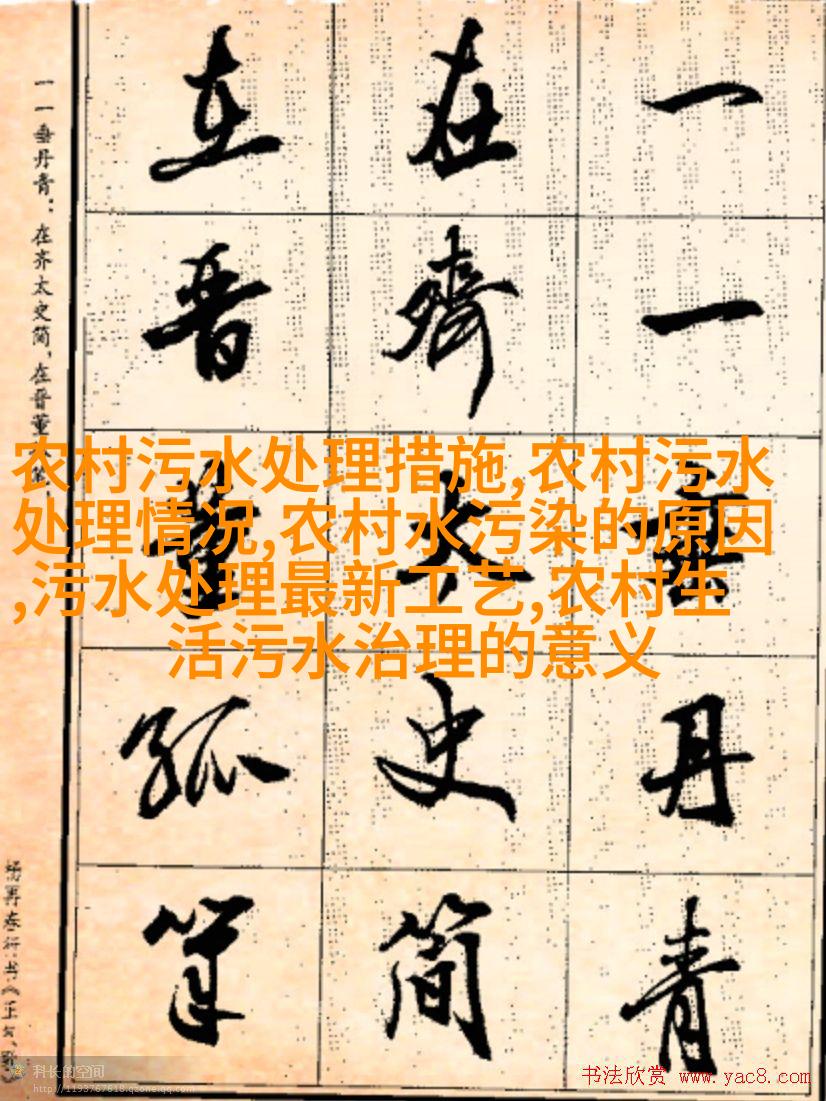 一一垂丹青
在齊太史简
在晋董狐笔
一一垂丹青：在齐太史简，在晋董
杨再春行书《正气
农村污水处理措施,农村污水
处理情况,农村水污染的原因
,污水处理最新工艺,农村生
活污水治理的意义
科长的空间
http://1193767618.qzone.qq.com
书法欣赏 www.yac8.com